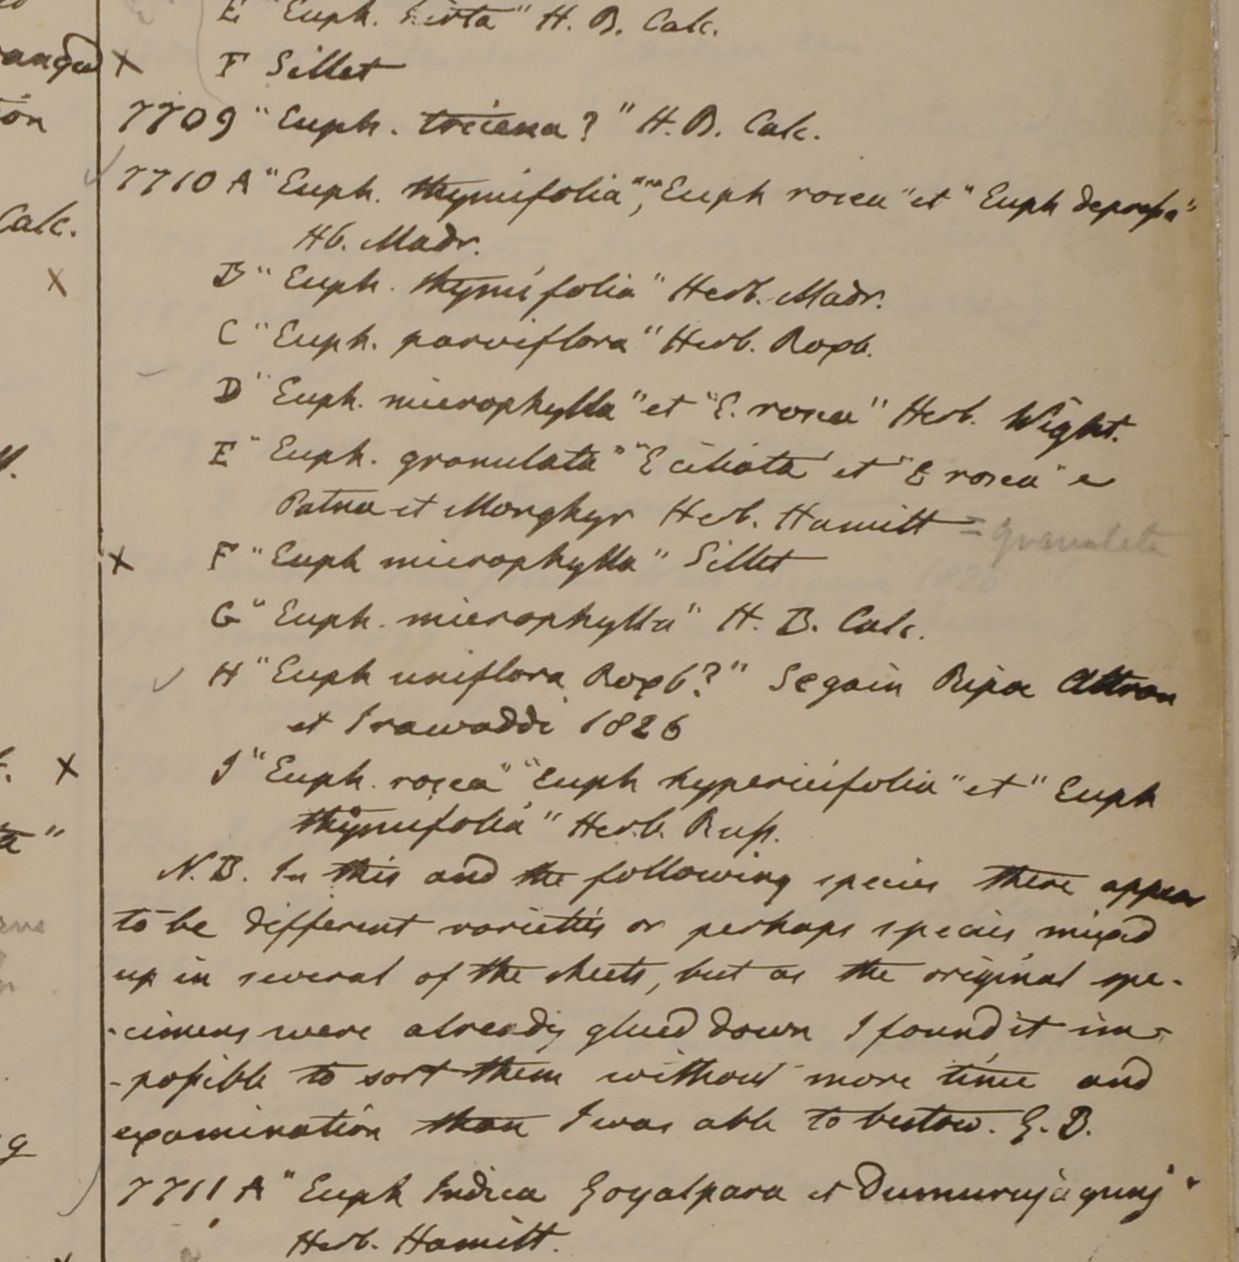 E "Euph. hirta" H. B. Calc.
F Sillet
7709 "Euph. tricena?" H. B. Calc.
7710 A "Euph. thymifolia", "Euph rosea" et "Euph depressa"
Hb. Madr.
B "Euph. thymifolia" Herb. Madr.
C "Euph. parviflora" Herb. Roxb.
D "Euph. microphylla" et "E. rosea" Herb. Wight.
E "Euph. granulata" "E ciliata et "E rosea" e
Patna et Monghyr Herb. Hamilt = granulata
F "Euph microphylla" Sillet
G "Euph. microphylla" H. B. Calc.
H "Euph uniflora Roxb?" Segain Ripa Attran
et Irawaddi 1826
I "Euph. rosea" "Euph hypericifolia" et "Euph
thymifolia" Herb. Russ.
N.B. In this and the following species there appear
to be different varieties or perhaps species mixed
up in several of the sheets, but as the original spe-
-cimens were already glued down I found it im-
-possible to sort them without more time and
examination than I was able to bestow. G. B.
7711 A "Euph Indica Goyalpara et Dumurujagunj"
Herb. Hamilt.
Calc.